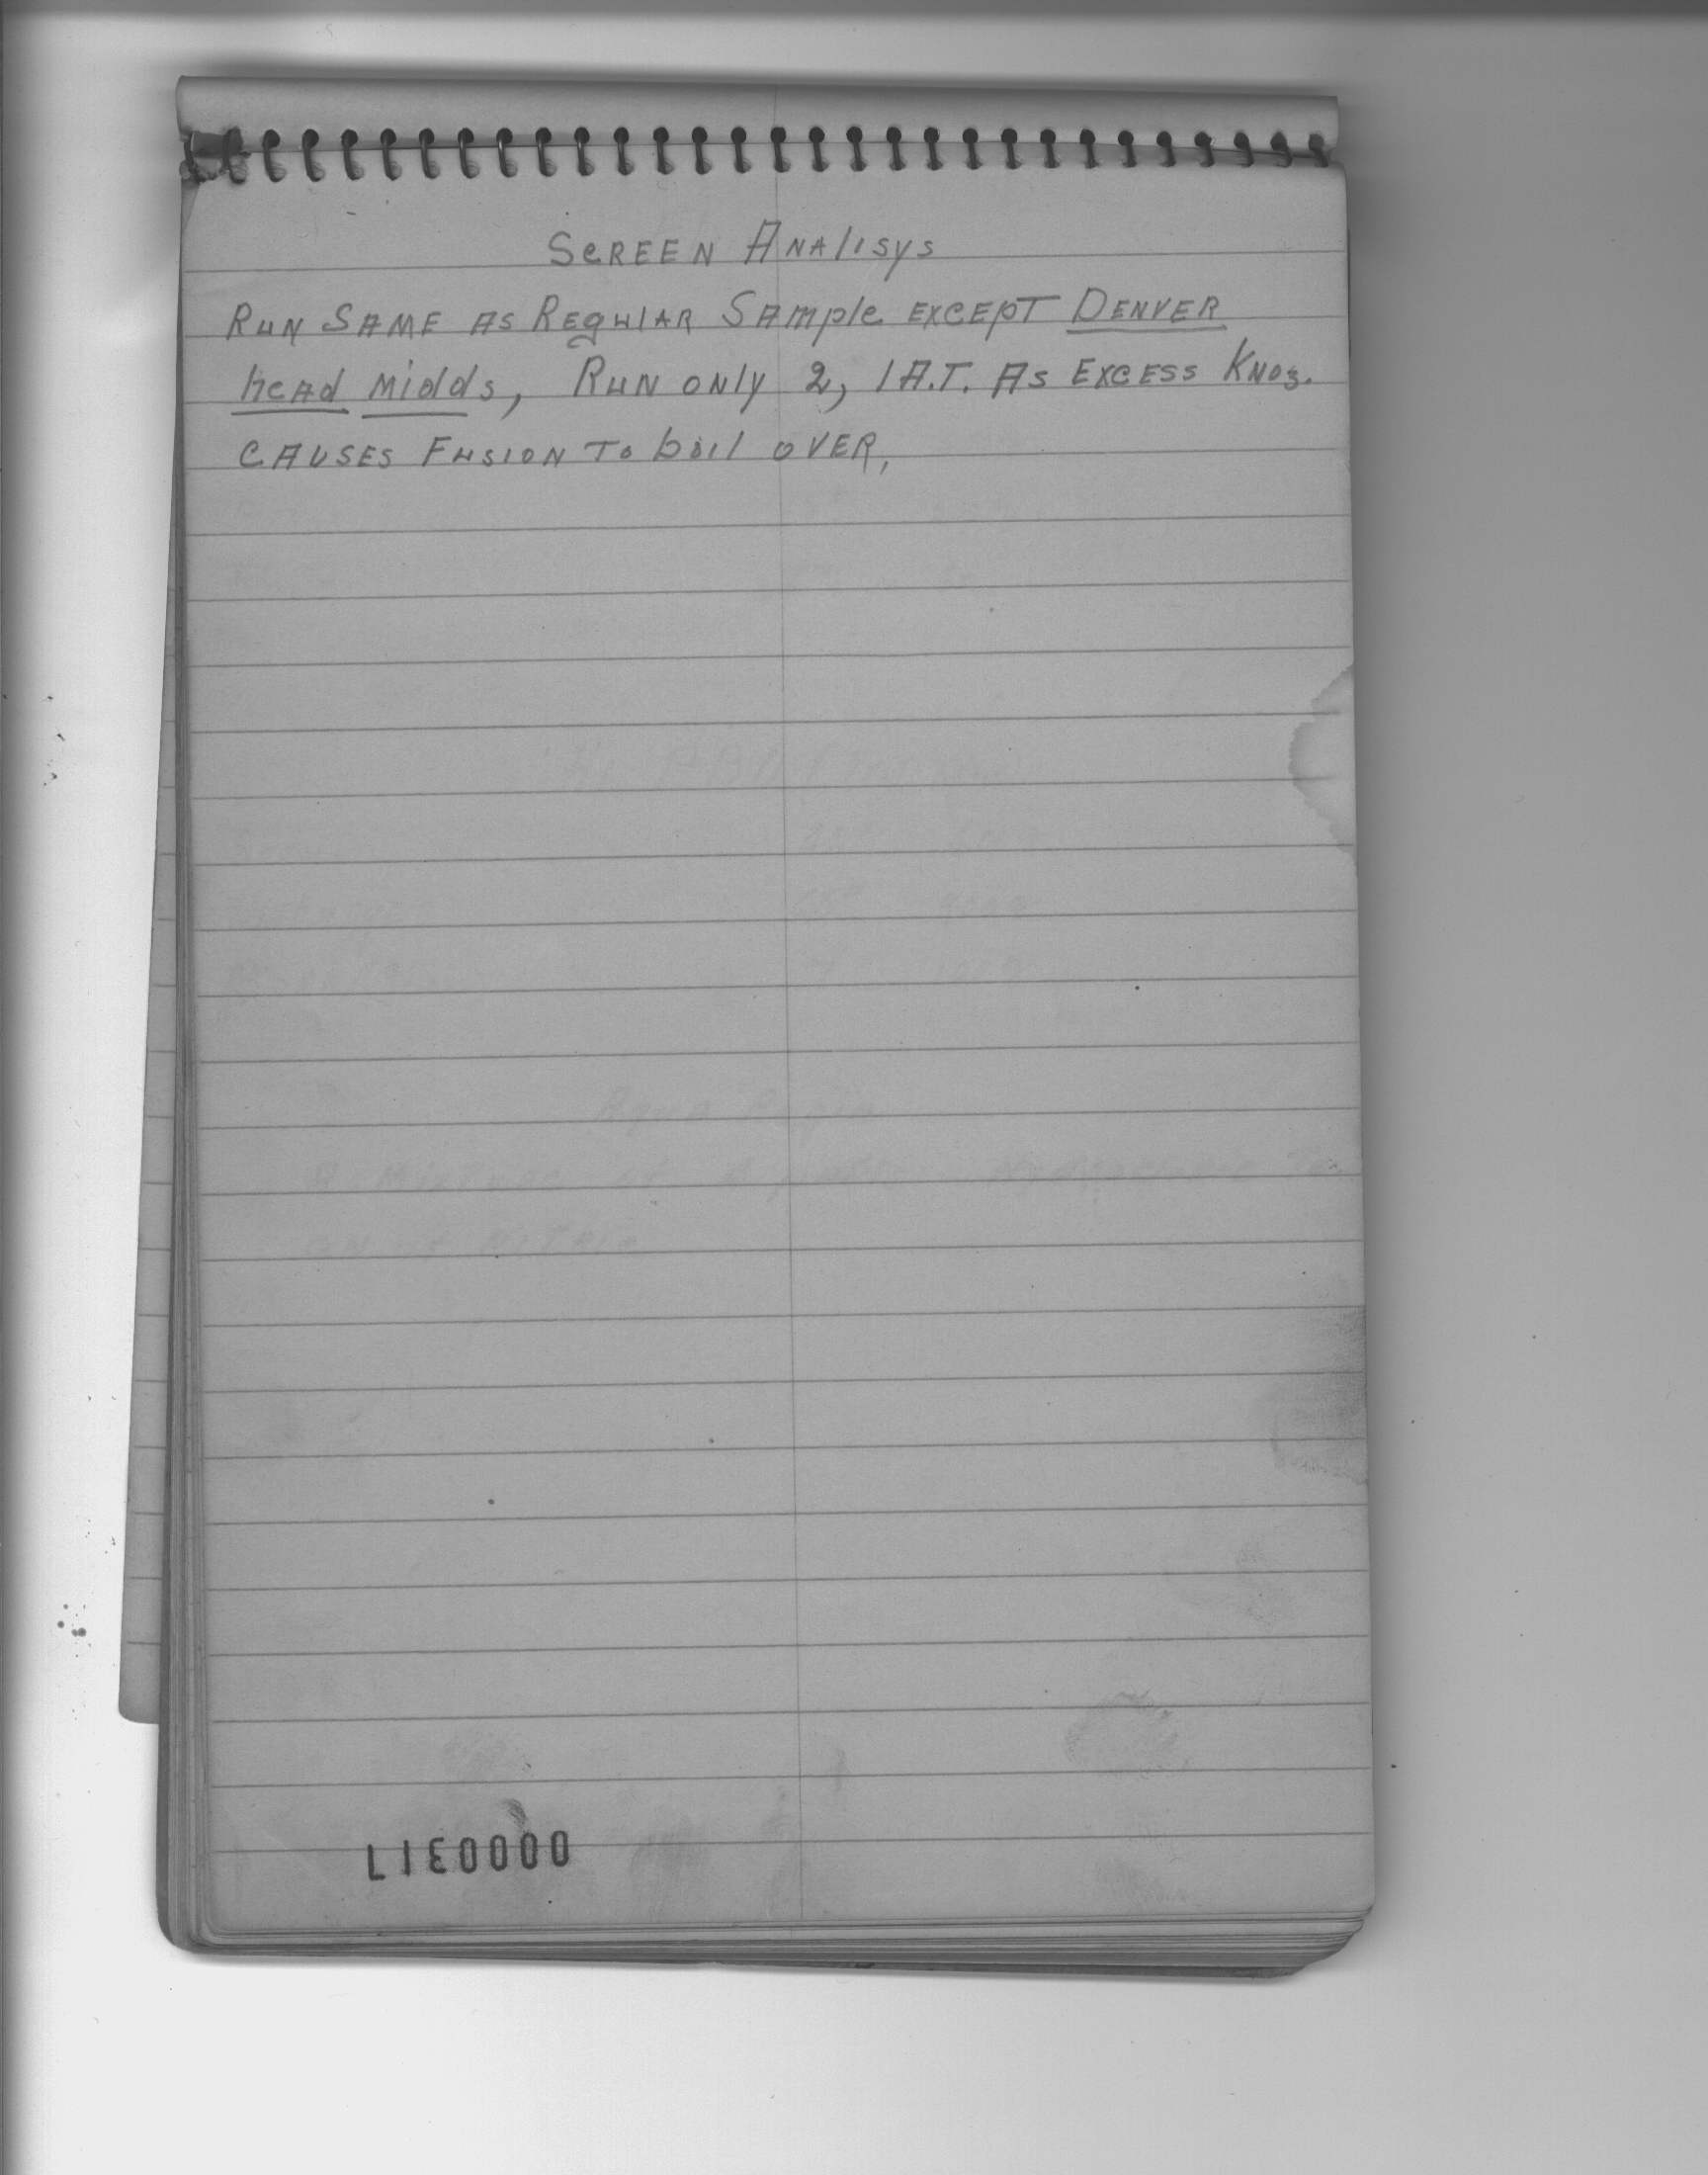 SCREEN ANAlISyS
RUN SAME AS REgUlAR SAmple EXCEpT DENVER
head midds, RUN ONly 2, 1 A.T. AS EXCESS KNO3.
CAUSES FUSION To boil OVER,
0000317